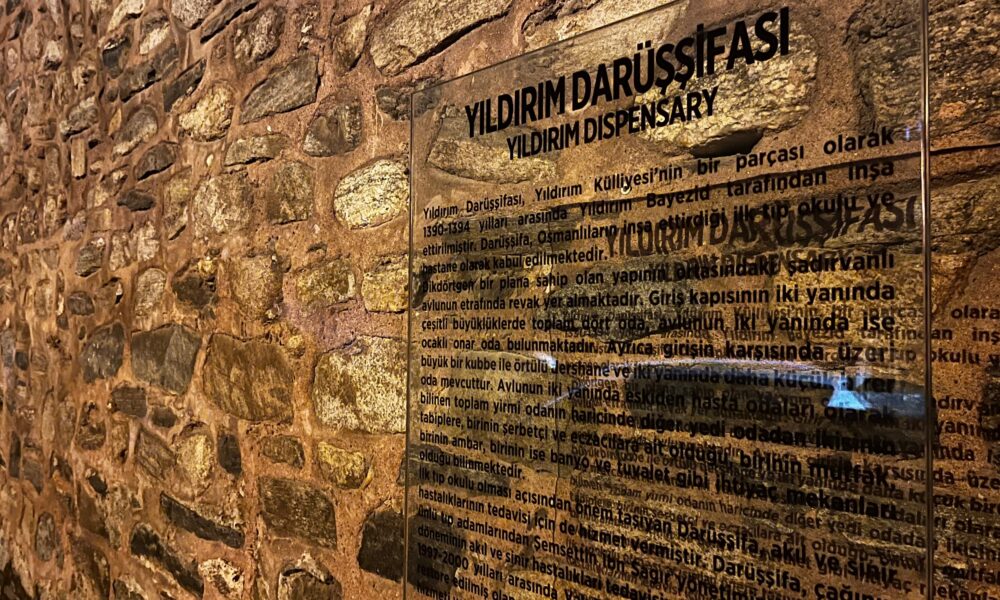 YILDIRIM DARÜŞŞİFASI
YILDIRIM DISPENSARY
Yıldırım Darüşşifası, Yıldırım Külliyesi’nin bir parçası olarak
1390-1394 yılları arasında Yıldırım Bayezid tarafından inşa
ettirilmiştir. Darüşşifa, Osmanlıların inşa ettirdiği ilk tıp okulu ve
hastane olarak kabul edilmektedir.
Dikdörtgen bir plana sahip olan yapının ortasındaki şadırvanlı
avlunun etrafında revak yer almaktadır. Giriş kapısının iki yanında
çeşitli büyüklüklerde toplam dört oda, avlunun iki yanında ise
ocaklı onar oda bulunmaktadır. Ayrıca girişin karşısında üzeri
büyük bir kubbe ile örtülü dershane ve iki yanında daha
oda mevcuttur. Avlunun iki yanında eskiden hasta odaları olarak
bilinen toplam yirmi odanın haricinde diğer yedi odadan ikisinin
tabiplere, birinin şerbetçi ve eczacılara ait olduğu, birinin mutfak,
birinin ambar, birinin ise banyo ve tuvalet gibi ihtiyaç mekanları
olduğu bilinmektedir.
İlk tıp okulu olması açısından önem taşıyan Darüşşifa, akıl ve sinir
hastalıklarının tedavisi için de hizmet vermiştir. Darüşşifa, çağın
ünlü tıp adamlarından Şemsettin ibn Sağir
döneminin akıl ve sinir hastalıkları
1997-2000 yılları arasında